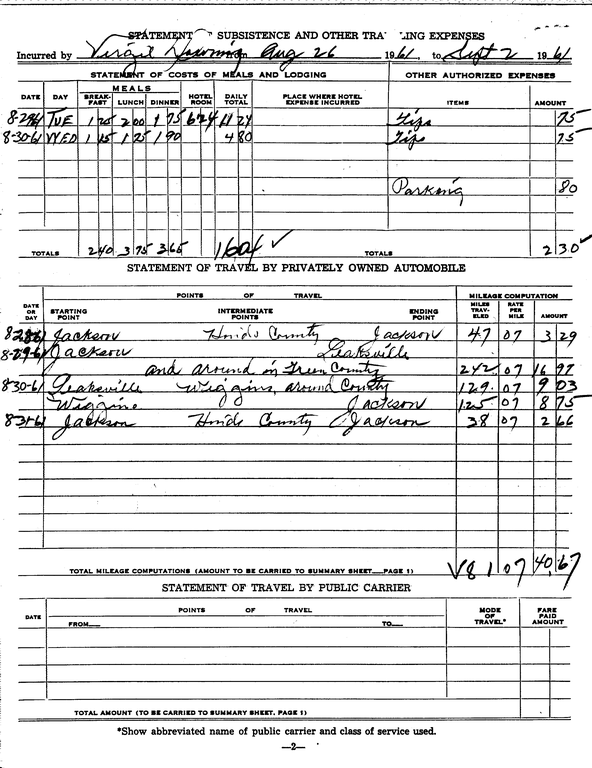 STATEMENT OF SUBSISTENCE AND OTHER TRAVELING EXPENSES
Incurred by Virgil Downing Aug 26 1961, to Sept 2 1961
STATEMENT OF COSTS OF MEALS AND LODGING OTHER AUTHORIZED EXPENSES
MEALS
DATE DAY BREAK-FAST LUNCH DINNER HOTEL ROOM DAILY TOTAL PLACE WHERE HOTEL EXPENSE INCURRED ITEMS AMOUNT
8-29-61 TUE 1 25 2 00 1 75 6 24 11 24 Tips 75
8-30-61 WED 1 15 1 25 1 90 4 80 Tips 75
Parking 80
TOTALS 2 40 3 75 3 65 1604 ✓ TOTALS 2 30 ✓
STATEMENT OF TRAVEL BY PRIVATELY OWNED AUTOMOBILE
POINTS OF TRAVEL MILEAGE COMPUTATION
DATE OR DAY STARTING POINT INTERMEDIATE POINTS ENDING POINT MILES TRAV-ELED RATE PER MILE AMOUNT
8-28-61 Jackson Hinds County Jackson 47 07 3 29
8-29-61 Jackson Leaksville
and around in Green County 242 07 16 97
8-30-61 Leaksville Wiggins, around County 129 07 9 03
Wiggins Jackson 125 07 8 75
8-31-61 Jackson Hinds County Jackson 38 07 2 66
TOTAL MILEAGE COMPUTATIONS (AMOUNT TO BE CARRIED TO SUMMARY SHEET—PAGE 1) 81 07 40 67
STATEMENT OF TRAVEL BY PUBLIC CARRIER
DATE POINTS OF TRAVEL MODE OF TRAVEL* FARE PAID AMOUNT
FROM— TO—
TOTAL AMOUNT (TO BE CARRIED TO SUMMARY SHEET, PAGE 1)
*Show abbreviated name of public carrier and class of service used.
—2—